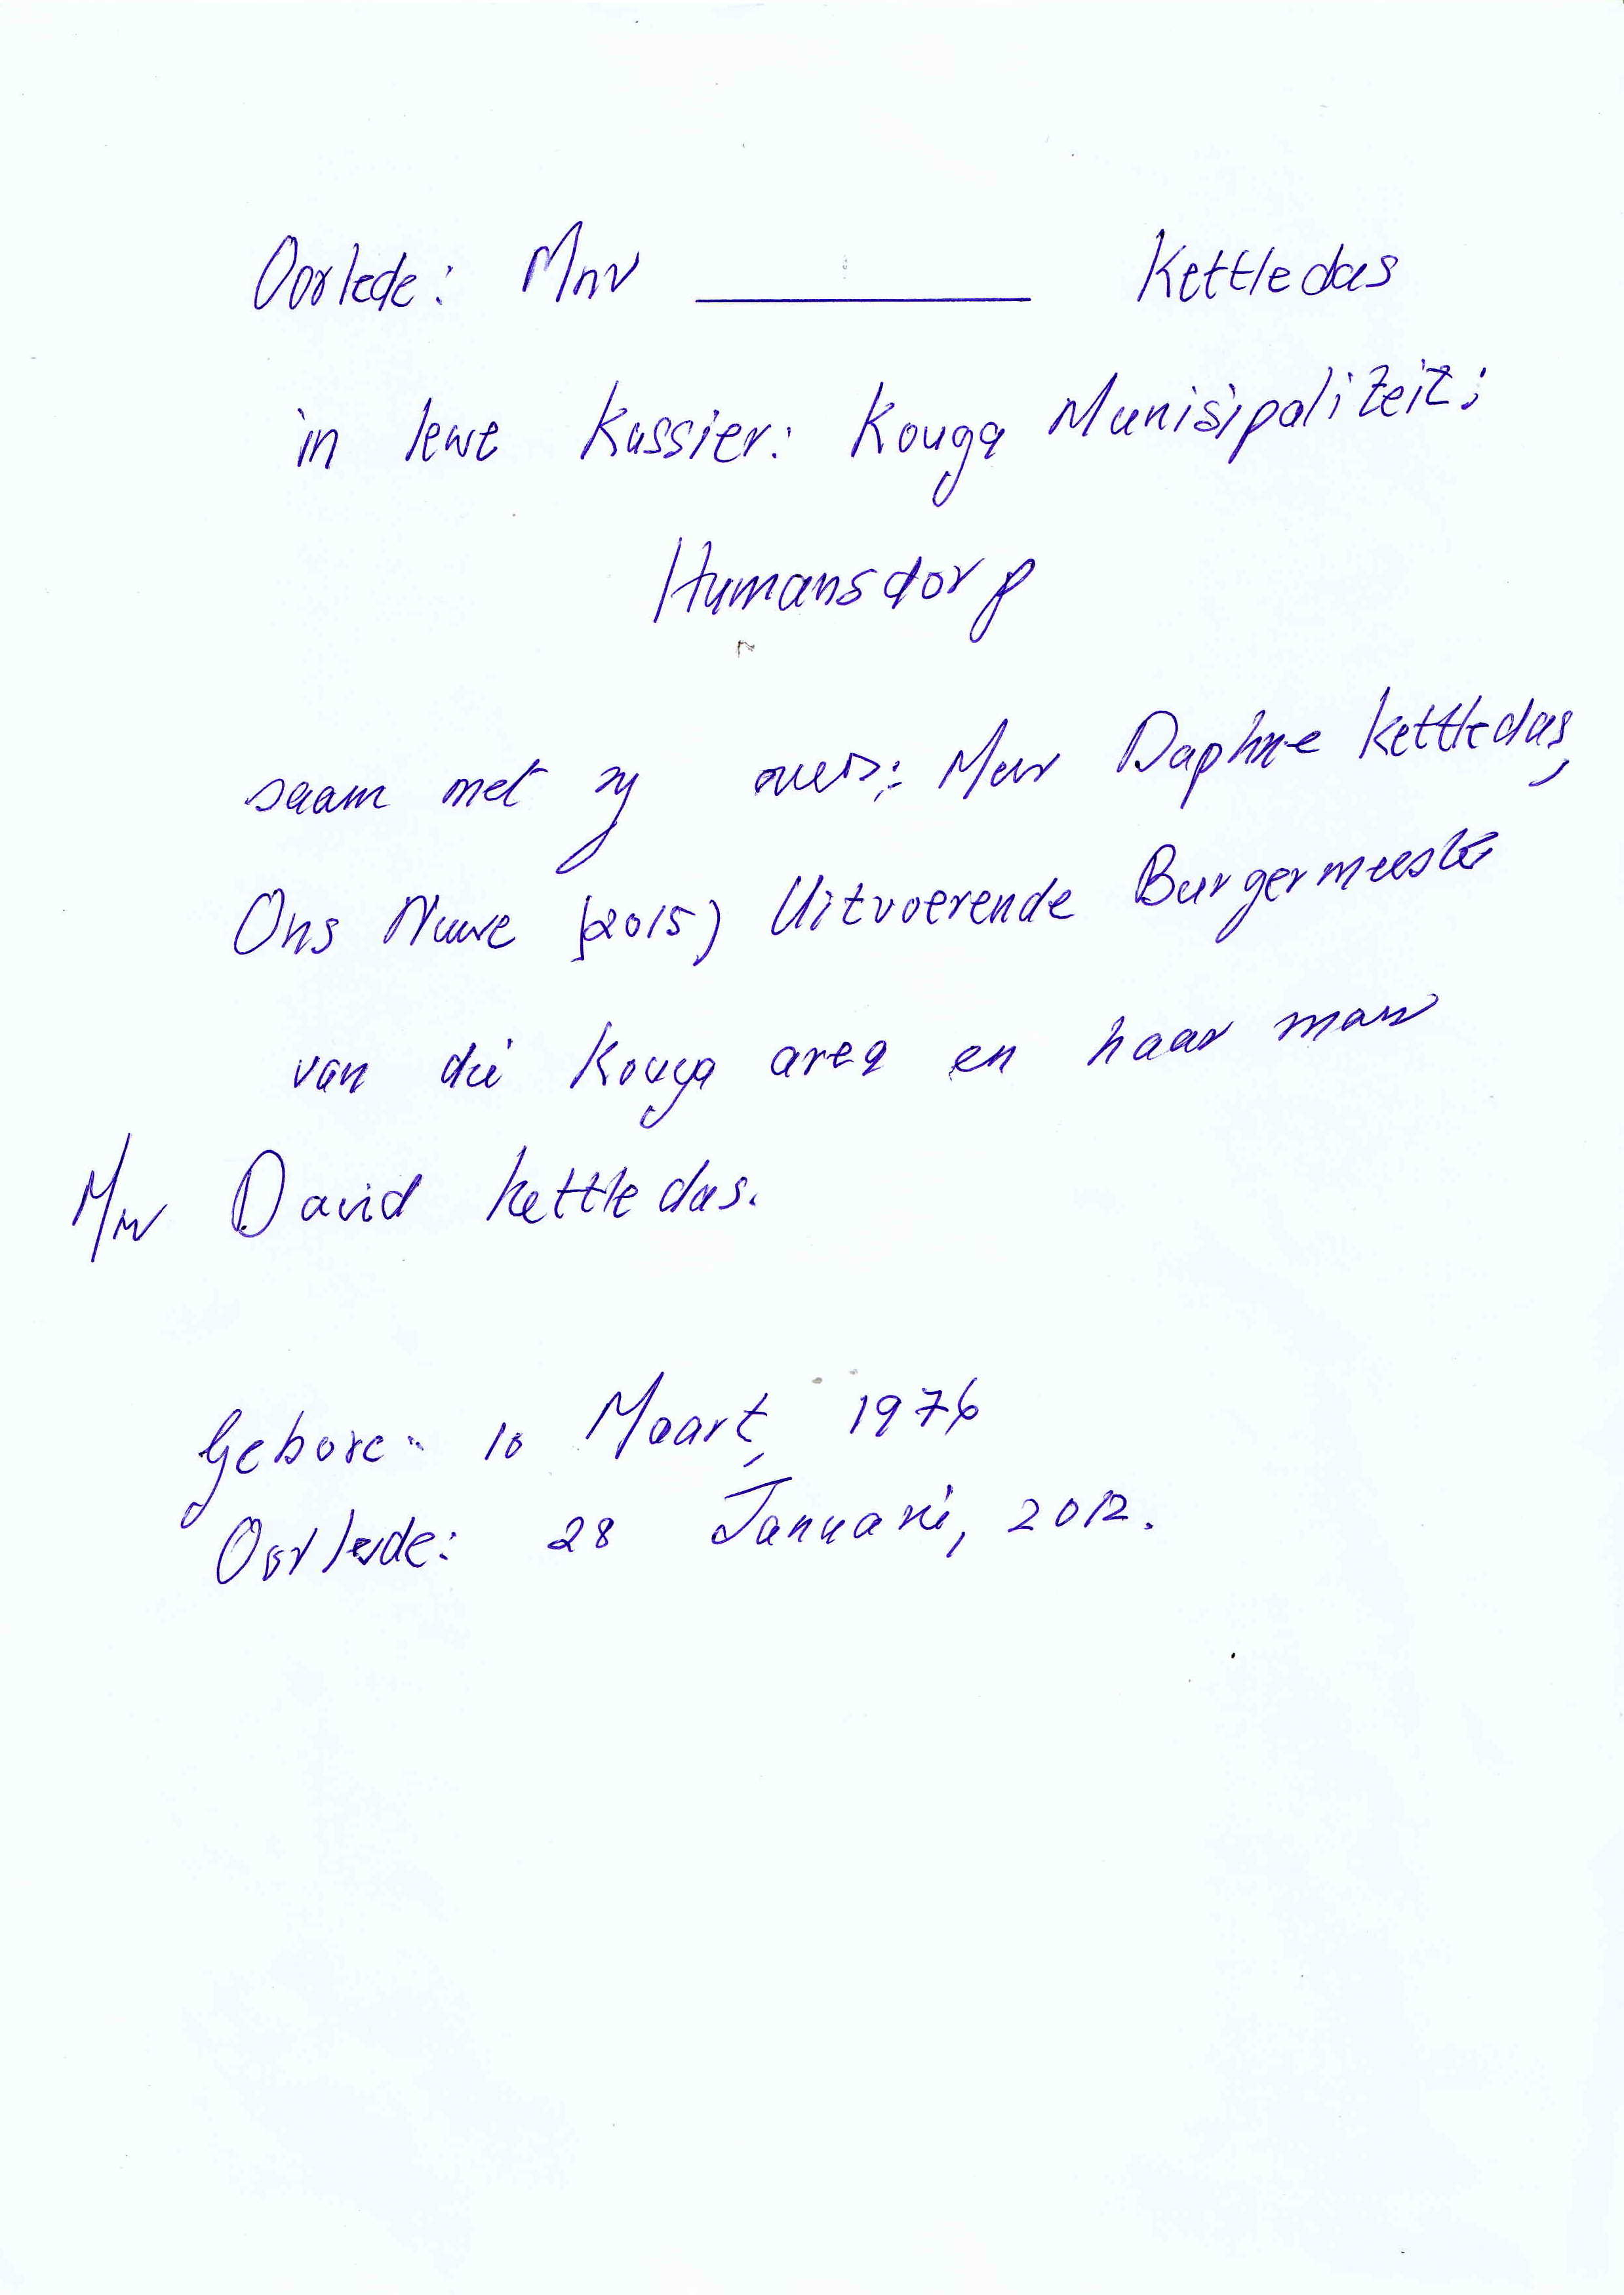 Oorlede: Mnr __________ Kettledas
in lewe Kassier: Kouga Munisipaliteit:
Humansdorp
saam met sy ouers: Mev Daphne Kettledas,
Ons Nuwe (2015) Uitvoerende Burgermeester
van die Kouga area en haar man
Mnr David Kettledas.
Gebore: 10 Maart, 1976
Oorlede: 28 Januarie, 2012.